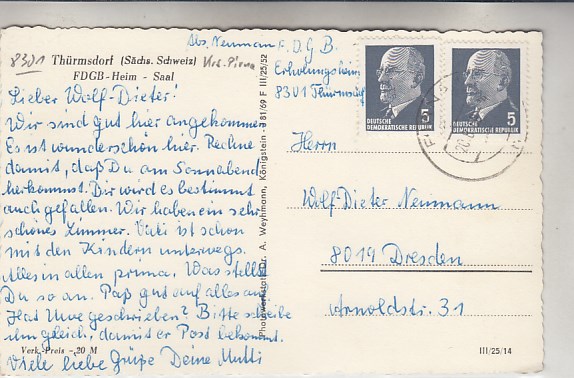 8301
Thürmsdorf (Sächs. Schweiz)
FDGB-Heim - Saal
Krs. Pirna
Lieber Wolf-Dieter!
Wir sind gut hier angekommen.
Es ist wunderschön hier. Rechne
damit, daß Du am Sonnabend
herkommst. Dir wird es bestimmt
auch gefallen. Wir haben ein sehr
schönes Zimmer. Vati ist schon
mit den Kindern unterwegs.
Alles in allem prima. Was stellst
Du so an. Paß gut auf alles auf
Hat Uwe geschrieben? Bitte schreibe
ihm gleich, damit er Post bekommt.
Viele liebe Grüße Deine Mutti
Verk.-Preis -,20 M
Photowerkstätten Dr. A. Weyhmann, Königstein - J 81/69 F III/25/52
Abs. Neumann F.D.G.B.
Erholungsheim
8301 Thürmsdorf
5
DEUTSCHE
DEMOKRATISCHE REPUBLIK
5
DEUTSCHE
DEMOKRATISCHE REPUBLIK
Herrn
Wolf-Dieter Neumann
8019 Dresden
Arnoldstr. 31
III/25/14